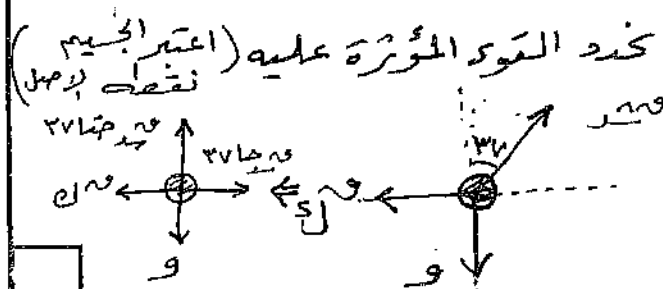 نحدد القوى المؤثرة عليه (اعتبر الجسيم
نقطة الاصل)
قشد
٣٧
قك
و
قشد جتا٣٧
قشد جا٣٧
قك
و